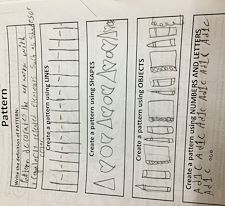 Pattern
Write the definition of PATTERN:
Pattern decorates the
Create a pattern using LINES
Create a pattern using SHAPES
Create a pattern using OBJECTS
Create a pattern using NUMBERS AND LETTERS
Ad1c Ad1c Ad1c Ad1c Ad1c
Ad1c ...